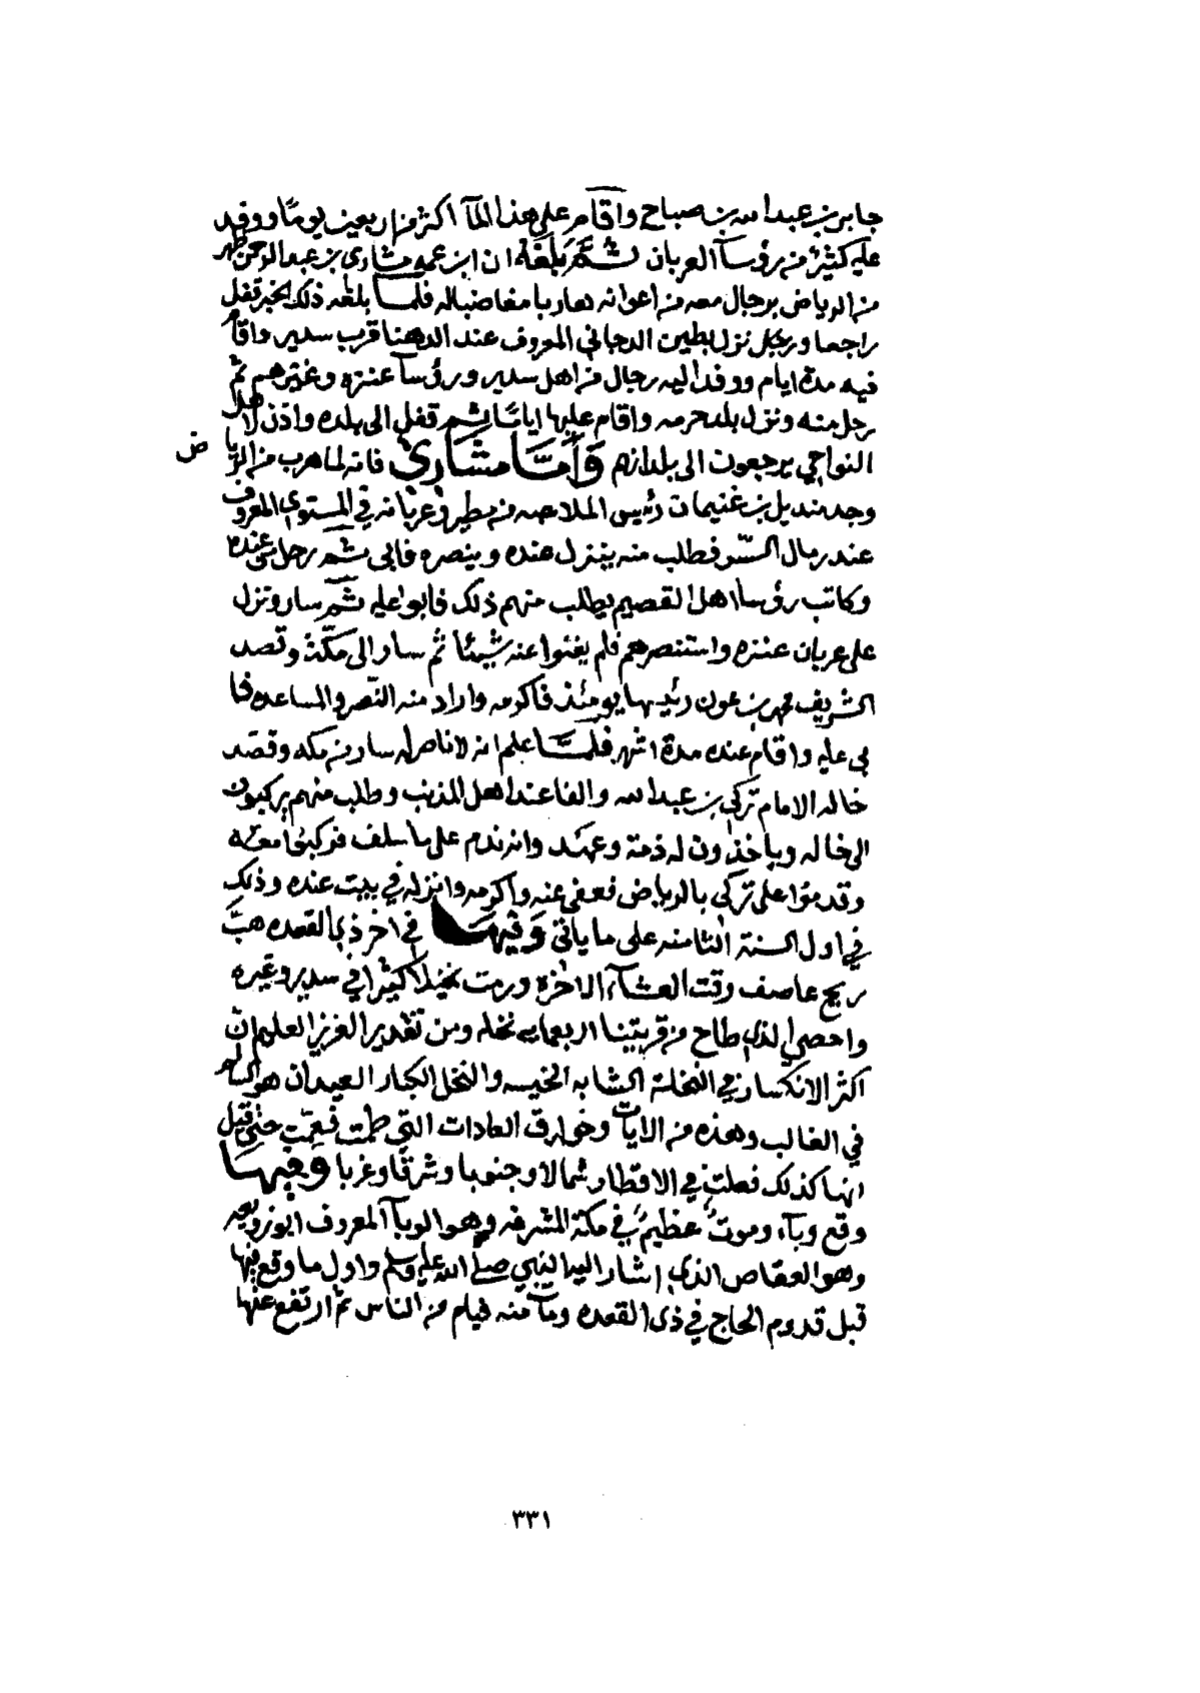 جابر بن عبدالله بن صباح واقام على هذا المآ اكثر من اربعين يومًا ووفد
عليه كثيرٌ من رؤسآ العربان ثُمَّ بَلَغَهُ ان ابن عمه مشاري بن عبدالرحمن ظهر
من الرياض برجال معه من اعوانه هاربا مغاضبا له فلما بلغه ذلك الخبر قفل
راجعا ورحل ونزل بطين الدجاني المعروف عند الدهنا قرب سدير واقام
فيه مدة ايام ووفد اليه رجال من اهل سدير ورؤسآ عنزه وغيرهم ثم
رحل منه ونزل بلد حرمه واقام عليها ايامًا ثم قفل الى بلده واذن لاهل
النواحي يرجعون الى بلدانهم وَأَمَّا مشاريْ فانه لما هرب من الرياض
وجد منديل بن غنيمان رئيس الملاعبه من مطير وعربانه في المستوي المعروف
عند رمال السّر فطلب منه ينزل عنده وينصره فابى ثم رحل من عنده
وكاتب رؤسا اهل القصيم يطلب منهم ذلك فابوا عليه ثم سار ونزل
على عربان عنزه واستنصرهم فلم يغنوا عنه شيئًا ثم سار الى مكّة وقصد
الشريف محمد بن عون رئيسها يومئذ فاكرمه واراد منه النّصر والمساعده فا
بى عليه واقام عنده مدة اشهر فلمَّا علم انه لا ناصر له سار من مكه وقصد
خاله الامام تركي بن عبدالله والفا عند اهل المذنب وطلب منهم يركبون
الى خاله وياخذون له ذمة وعهد وانه ندم على ما سلف فركبوا معه
وقدموا على تركي بالرياض فعفى عنه واكرمه وانزله في بيت عنده وذلك
في اول السنة الثامنه على ما ياتي وَفيهَا في اخر ذي القعده هبّ
ريح عاصف وقت العشآء الاخره ورمت نخيلًا كثيرا في سدير وغيره
واحصي الذي طاح من قريتينا اربعمايه نخله ومن تقدير العزيز العليم ان
اكثر الانكسار في النخلة الشابه الخيسه والنخل الكبار العيدان هو السالم
في الغالب وهذه من الايات وخوارق العادات التي طمت فعمّت حتى قيل
انها كذلك فعلت في الاقطار شمالا وجنوبا وشرقًا وغربا وفيها
وقع وبآء وموتٌ عظيمٌ في مكة المشرفه وهو الوبآ المعروف ابو زويعه
وهو العقاص الذي اشار اليه النبي صلى الله عليه وسلم واول ما وقع فيها
قبل قدوم الحاج في ذي القعده ومات منه فيام من الناس ثم ارتفع عنها
٣٣١